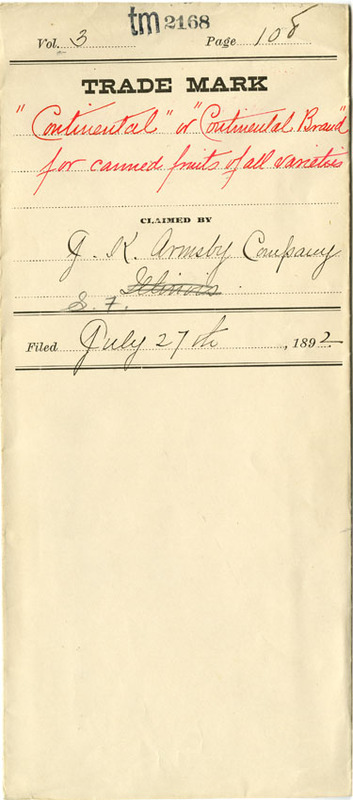 tm 2168
Vol. 3 Page 108
TRADE MARK
"Continental" or "Continental Brand"
for canned fruits of all varieties
CLAIMED BY
J. K. Armsby Company
Illinois
S. F.
Filed July 27th, 1892